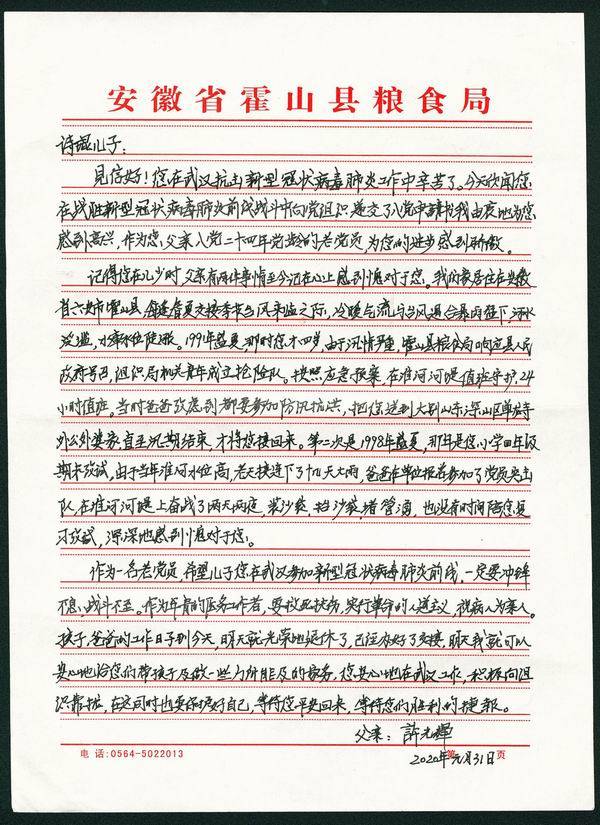 安徽省霍山县粮食局
诗琨儿子:
见信好!您在武汉抗击新型冠状病毒肺炎工作中辛苦了。今天欣闻您,
在战胜新型冠状病毒肺炎前线战斗中向党组织递交了入党申请书我由衷地为您
感到高兴,作为您父亲入党二十四年党龄的老党员,为您的进步感到骄傲。
记得您在儿少时,父亲有两件事情至今记在心上感到愧对于您。我的家居住在安徽
省六安市霍山县,每逢春夏交接季节台风来临之际,冷暖气流与台风遇合暴雨倾下,河水
泛滥,水库水位使涨。1991年盛夏,那时您才四岁,由于汛情严重,霍山县粮食局响应县人民
政府号召,组织局机关青年成立抢险队。按照应急预案,在淮河河堤值班守护,24
小时值班,当时爸爸考虑到都要参加防汛抗洪,把您送到大别山东深山区单龙寺
外公外婆家,直至汛期结束,才将您接回来。第二次是1998年盛夏,那年是您小学四年级
期末考试,由于当年淮河水位高,老天接连下了十几天大雨,爸爸在单位报名参加了党员突击
队,在淮河河堤上奋战了两天两夜,装沙袋,挡沙袋,堵管涌,也没有时间陪您复
习考试,深深地感到愧对于您。
作为一名老党员,希望儿子您在武汉参加新型冠状病毒肺炎前线,一定要冲锋
不息,战斗不至。作为年青的医务工作者,要救死扶伤,实行革命的人道主义,视病人为亲人。
孩子,爸爸的工作日子到今天,明天就光荣地退休了,已经办好了交接,明天我就可以
安心地给您们带孩子及做一些力所能及的家务,您安心地在武汉工作,积极向组
织靠拢,在这同时也要保护好自己,等待您平安回来,等待您们胜利的捷报。
父亲:许光辉
2020年元月31日
电话:0564-5022013
第 页